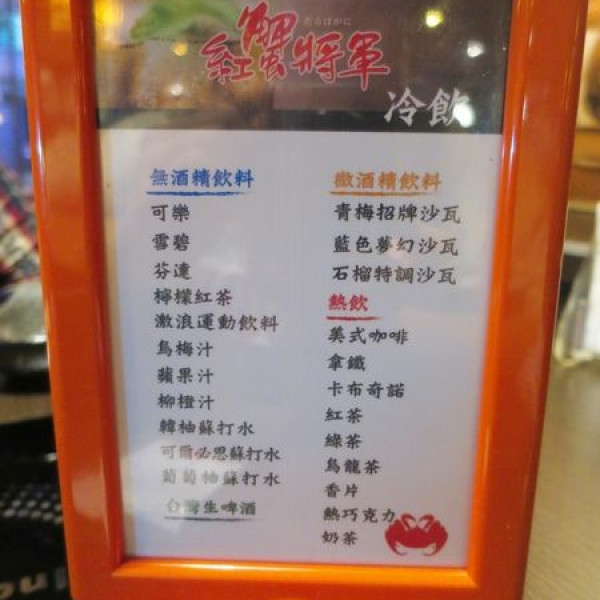 紅蟹將軍
冷飲
無酒精飲料
可樂
雪碧
芬達
檸檬紅茶
激浪運動飲料
烏梅汁
蘋果汁
柳橙汁
韓柚蘇打水
可爾必思蘇打水
葡萄柚蘇打水
台灣生啤酒
微酒精飲料
青梅招牌沙瓦
藍色夢幻沙瓦
石榴特調沙瓦
熱飲
美式咖啡
拿鐵
卡布奇諾
紅茶
綠茶
烏龍茶
香片
熱巧克力
奶茶